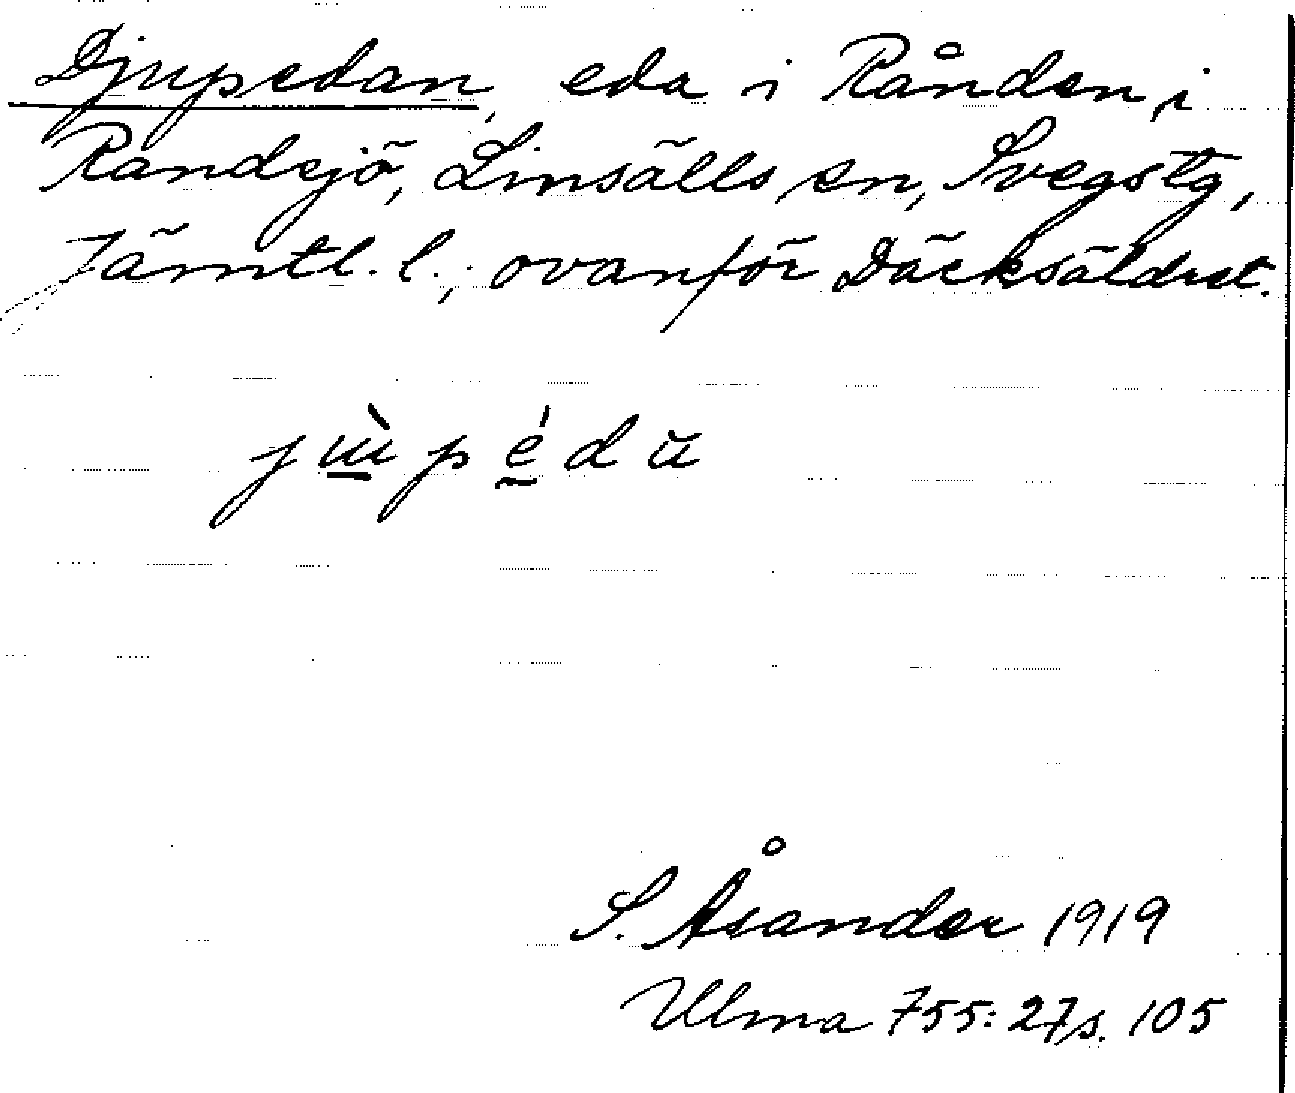 Djupedan, eda i Rånden, i
Randsjö, Linsälls sn, Svegs tg,
Jämtl. l., ovanför Däcksäldret.
S. Åsander 1919
Ulma 755:27 s. 105